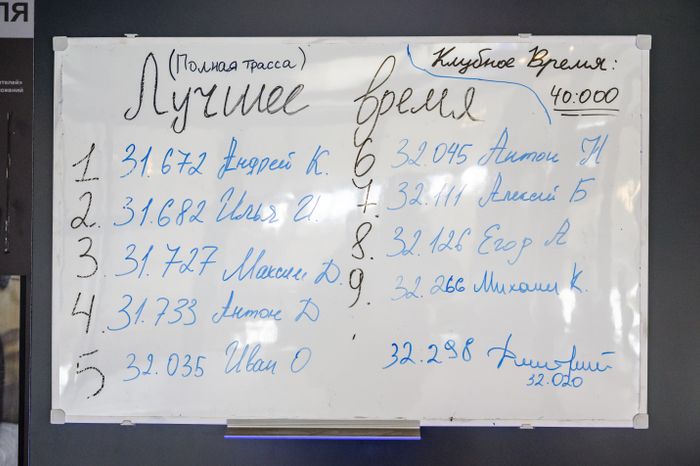 ЛЯ
(Полная трасса)
Лучшее время
Клубное Время:
40:000
1 31.672 Андрей К.
2. 31.682 Илья И.
3. 31.727 Максим Д.
4. 31.733 Антон Д
5 32.035 Иван О
6 32.045 Антон Н
7. 32.111 Алексей Б
8. 32.126 Егор А
9. 32.266 Михаил К.
32.298 Дмитрий
32.020